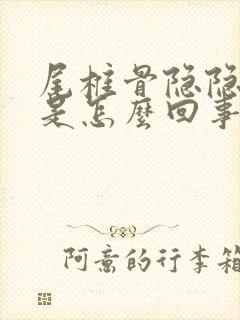 尾椎骨隐隐
是怎麽回事
阿意的行李箱